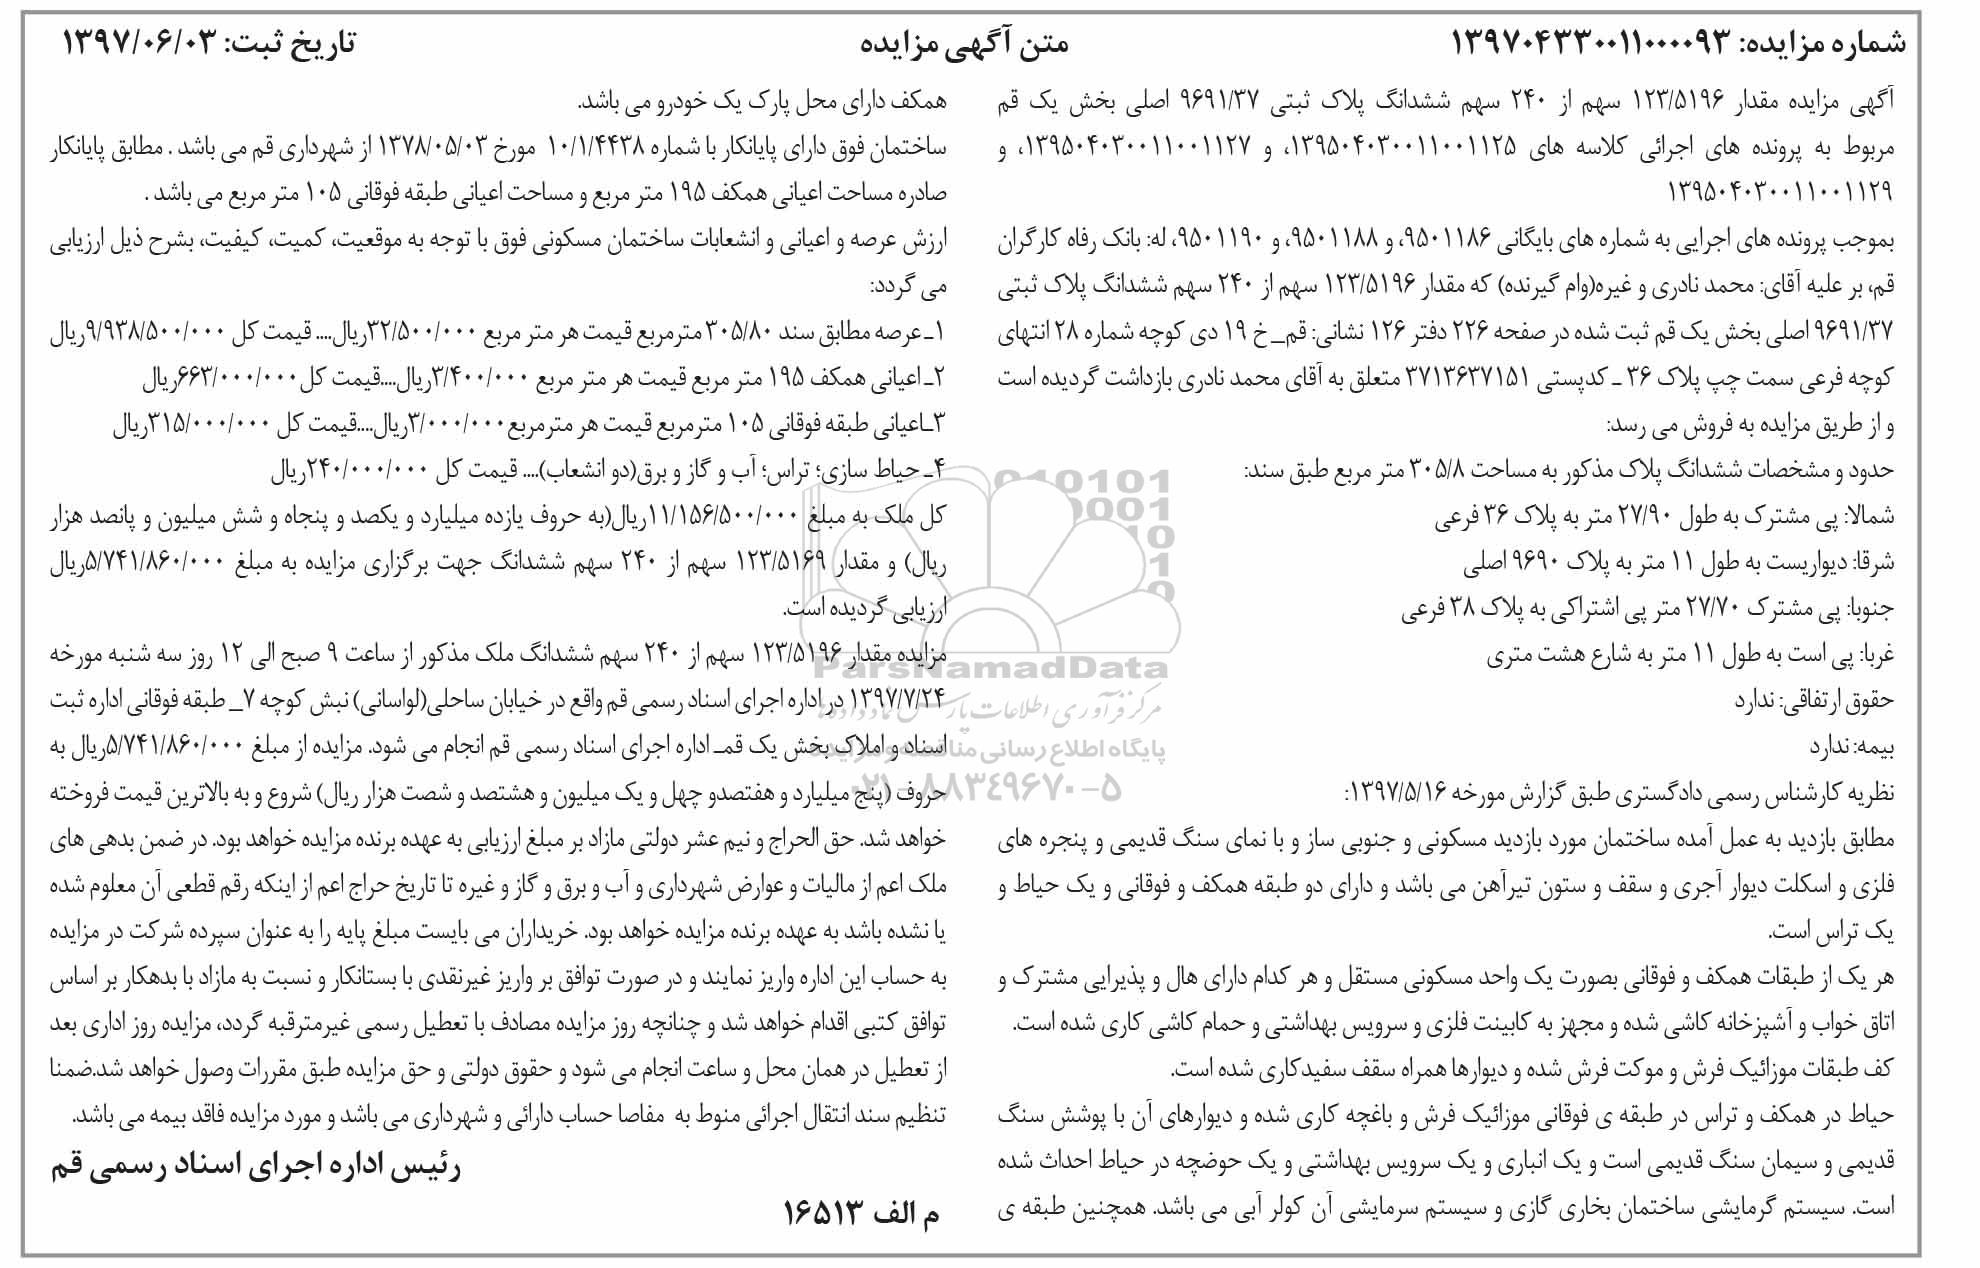 شماره مزایده: ۱۳۹۷۰۴۳۳۰۰۱۱۰۰۰۰۹۳
متن آگهی مزایده
تاریخ ثبت: ۱۳۹۷/۰۶/۰۳
آگهی مزایده مقدار ۱۲۳/۵۱۹۶ سهم از ۲۴۰ سهم ششدانگ پلاک ثبتی ۹۶۹۱/۳۷ اصلی بخش یک قم
مربوط به پرونده های اجرائی کلاسه های ۱۳۹۵۰۴۰۳۰۰۱۱۰۰۱۱۲۵، و ۱۳۹۵۰۴۰۳۰۰۱۱۰۰۱۱۲۷، و
۱۳۹۵۰۴۰۳۰۰۱۱۰۰۱۱۲۹
بموجب پرونده های اجرایی به شماره های بایگانی ۹۵۰۱۱۸۶، و ۹۵۰۱۱۸۸، و ۹۵۰۱۱۹۰، له: بانک رفاه کارگران
قم، بر علیه آقای: محمد نادری و غیره(وام گیرنده) که مقدار ۱۲۳/۵۱۹۶ سهم از ۲۴۰ سهم ششدانگ پلاک ثبتی
۹۶۹۱/۳۷ اصلی بخش یک قم ثبت شده در صفحه ۲۲۶ دفتر ۱۲۶ نشانی: قم_ خ ۱۹ دی کوچه شماره ۲۸ انتهای
کوچه فرعی سمت چپ پلاک ۳۶ ـ کدپستی ۳۷۱۳۶۳۷۱۵۱ متعلق به آقای محمد نادری بازداشت گردیده است
و از طریق مزایده به فروش می رسد:
حدود و مشخصات ششدانگ پلاک مذکور به مساحت ۳۰۵/۸ متر مربع طبق سند:
شمالا: پی مشترک به طول ۲۷/۹۰ متر به پلاک ۳۶ فرعی
شرقا: دیواریست به طول ۱۱ متر به پلاک ۹۶۹۰ اصلی
جنوبا: پی مشترک ۲۷/۷۰ متر پی اشتراکی به پلاک ۳۸ فرعی
غربا: پی است به طول ۱۱ متر به شارع هشت متری
حقوق ارتفاقی: ندارد
بیمه: ندارد
نظریه کارشناس رسمی دادگستری طبق گزارش مورخه ۱۳۹۷/۵/۱۶:
مطابق بازدید به عمل آمده ساختمان مورد بازدید مسکونی و جنوبی ساز و با نمای سنگ قدیمی و پنجره های
فلزی و اسکلت دیوار آجری و سقف و ستون تیرآهن می باشد و دارای دو طبقه همکف و فوقانی و یک حیاط و
یک تراس است.
هر یک از طبقات همکف و فوقانی بصورت یک واحد مسکونی مستقل و هر کدام دارای هال و پذیرایی مشترک و
اتاق خواب و آشپزخانه کاشی شده و مجهز به کابینت فلزی و سرویس بهداشتی و حمام کاشی کاری شده است.
کف طبقات موزائیک فرش و موکت فرش شده و دیوارها همراه سقف سفیدکاری شده است.
حیاط در همکف و تراس در طبقه ی فوقانی موزائیک فرش و باغچه کاری شده و دیوارهای آن با پوشش سنگ
قدیمی و سیمان سنگ قدیمی است و یک انباری و یک سرویس بهداشتی و یک حوضچه در حیاط احداث شده
است. سیستم گرمایشی ساختمان بخاری گازی و سیستم سرمایشی آن کولر آبی می باشد. همچنین طبقه ی
همکف دارای محل پارک یک خودرو می باشد.
ساختمان فوق دارای پایانکار با شماره ۱۰/۱/۴۴۳۸ مورخ ۱۳۷۸/۰۵/۰۳ از شهرداری قم می باشد . مطابق پایانکار
صادره مساحت اعیانی همکف ۱۹۵ متر مربع و مساحت اعیانی طبقه فوقانی ۱۰۵ متر مربع می باشد .
ارزش عرصه و اعیانی و انشعابات ساختمان مسکونی فوق با توجه به موقعیت، کمیت، کیفیت، بشرح ذیل ارزیابی
می گردد:
۱ـ عرصه مطابق سند ۳۰۵/۸۰ مترمربع قیمت هر متر مربع ۳۲/۵۰۰/۰۰۰ریال.... قیمت کل ۹/۹۳۸/۵۰۰/۰۰۰ریال
۲ـ اعیانی همکف ۱۹۵ متر مربع قیمت هر متر مربع ۳/۴۰۰/۰۰۰ریال....قیمت کل۶۶۳/۰۰۰/۰۰۰ریال
۳ـاعیانی طبقه فوقانی ۱۰۵ مترمربع قیمت هر مترمربع۳/۰۰۰/۰۰۰ریال....قیمت کل ۳۱۵/۰۰۰/۰۰۰ریال
۴ـ حیاط سازی؛ تراس؛ آب و گاز و برق(دو انشعاب).... قیمت کل ۲۴۰/۰۰۰/۰۰۰ریال
کل ملک به مبلغ ۱۱/۱۵۶/۵۰۰/۰۰۰ریال(به حروف یازده میلیارد و یکصد و پنجاه و شش میلیون و پانصد هزار
ریال) و مقدار ۱۲۳/۵۱۶۹ سهم از ۲۴۰ سهم ششدانگ جهت برگزاری مزایده به مبلغ ۵/۷۴۱/۸۶۰/۰۰۰ریال
ارزیابی گردیده است.
مزایده مقدار ۱۲۳/۵۱۹۶ سهم از ۲۴۰ سهم ششدانگ ملک مذکور از ساعت ۹ صبح الی ۱۲ روز سه شنبه مورخه
۱۳۹۷/۷/۲۴ در اداره اجرای اسناد رسمی قم واقع در خیابان ساحلی(لواسانی) نبش کوچه ۷_ طبقه فوقانی اداره ثبت
اسناد و املاک بخش یک قمـ اداره اجرای اسناد رسمی قم انجام می شود. مزایده از مبلغ ۵/۷۴۱/۸۶۰/۰۰۰ریال به
حروف (پنج میلیارد و هفتصدو چهل و یک میلیون و هشتصد و شصت هزار ریال) شروع و به بالاترین قیمت فروخته
خواهد شد. حق الحراج و نیم عشر دولتی مازاد بر مبلغ ارزیابی به عهده برنده مزایده خواهد بود. در ضمن بدهی های
ملک اعم از مالیات و عوارض شهرداری و آب و برق و گاز و غیره تا تاریخ حراج اعم از اینکه رقم قطعی آن معلوم شده
یا نشده باشد به عهده برنده مزایده خواهد بود. خریداران می بایست مبلغ پایه را به عنوان سپرده شرکت در مزایده
به حساب این اداره واریز نمایند و در صورت توافق بر واریز غیرنقدی با بستانکار و نسبت به مازاد با بدهکار بر اساس
توافق کتبی اقدام خواهد شد و چنانچه روز مزایده مصادف با تعطیل رسمی غیرمترقبه گردد، مزایده روز اداری بعد
از تعطیل در همان محل و ساعت انجام می شود و حقوق دولتی و حق مزایده طبق مقررات وصول خواهد شد.ضمنا
تنظیم سند انتقال اجرائی منوط به مفاصا حساب دارائی و شهرداری می باشد و مورد مزایده فاقد بیمه می باشد.
رئیس اداره اجرای اسناد رسمی قم
م الف ۱۶۵۱۳
ParsNamadData
مرکز فرآوری اطلاعات پارس نماد داده ها
پایگاه اطلاع رسانی مناقصه و مزایده
۰۲۱-۸۸۳۴۹۶۷۰-۵